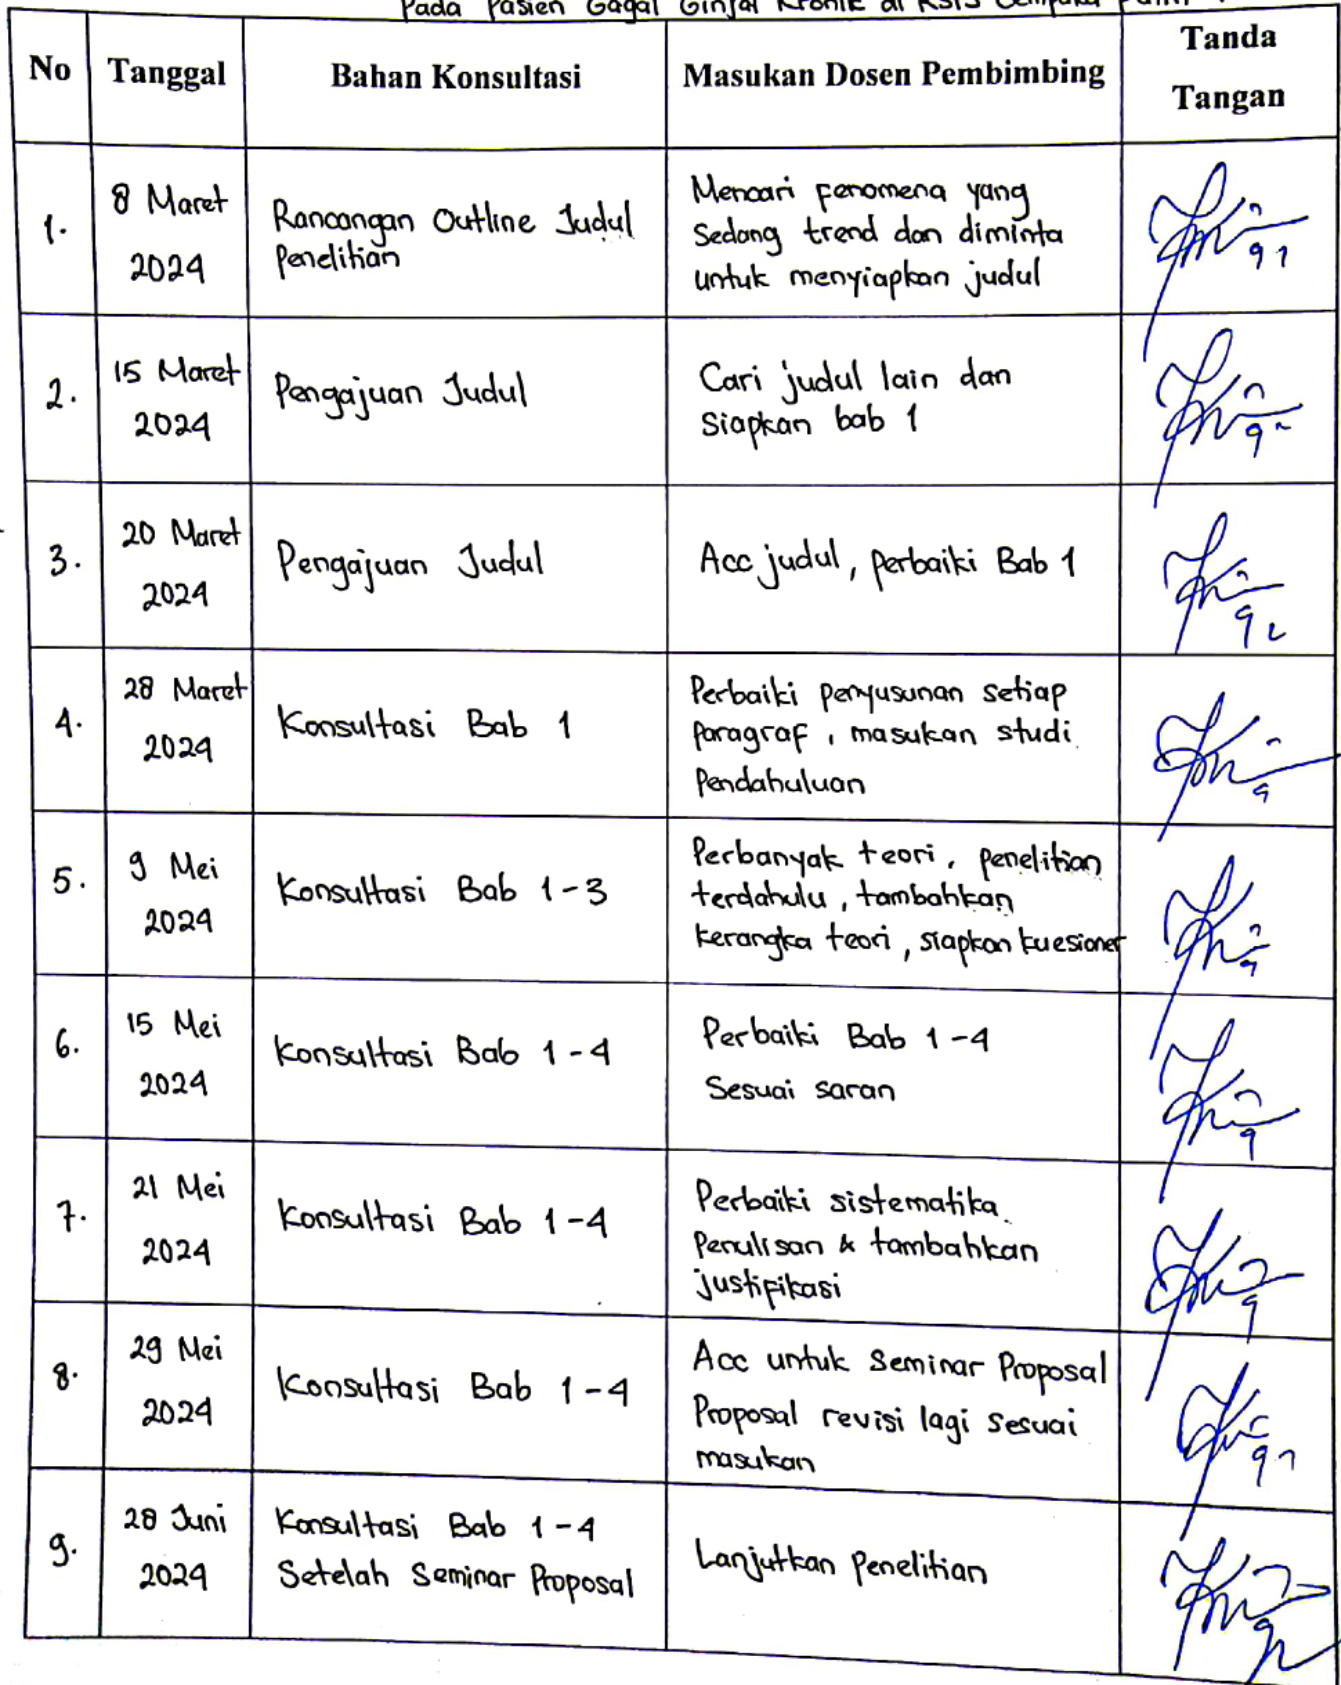 Pada Pasien Gagal Ginjal Kronik di RSIS Cempaka Putih
No Tanggal Bahan Konsultasi Masukan Dosen Pembimbing Tanda Tangan
1. 8 Maret 2024 Rancangan Outline Judul
Penelitian
Mencari fenomena yang
Sedang trend dan diminta
untuk menyiapkan judul
2. 15 Maret 2024 Pengajuan Judul
Cari judul lain dan
Siapkan bab 1
3. 20 Maret 2024 Pengajuan Judul
Acc judul, perbaiki Bab 1
4. 28 Maret 2024 Konsultasi Bab 1
Perbaiki penyusunan setiap
Paragraf, masukan studi
Pendahuluan
5. 9 Mei 2024 Konsultasi Bab 1-3
Perbanyak teori, penelitian
terdahulu, tambahkan
kerangka teori, siapkan kuesioner
6. 15 Mei 2024 Konsultasi Bab 1-4
Perbaiki Bab 1-4
Sesuai saran
7. 21 Mei 2024 Konsultasi Bab 1-4
Perbaiki sistematika
Penulisan & tambahkan
justifikasi
8. 29 Mei 2024 Konsultasi Bab 1-4
Acc untuk Seminar Proposal
Proposal revisi lagi sesuai
masukan
9. 28 Juni 2024 Konsultasi Bab 1-4
Setelah Seminar Proposal
Lanjutkan Penelitian